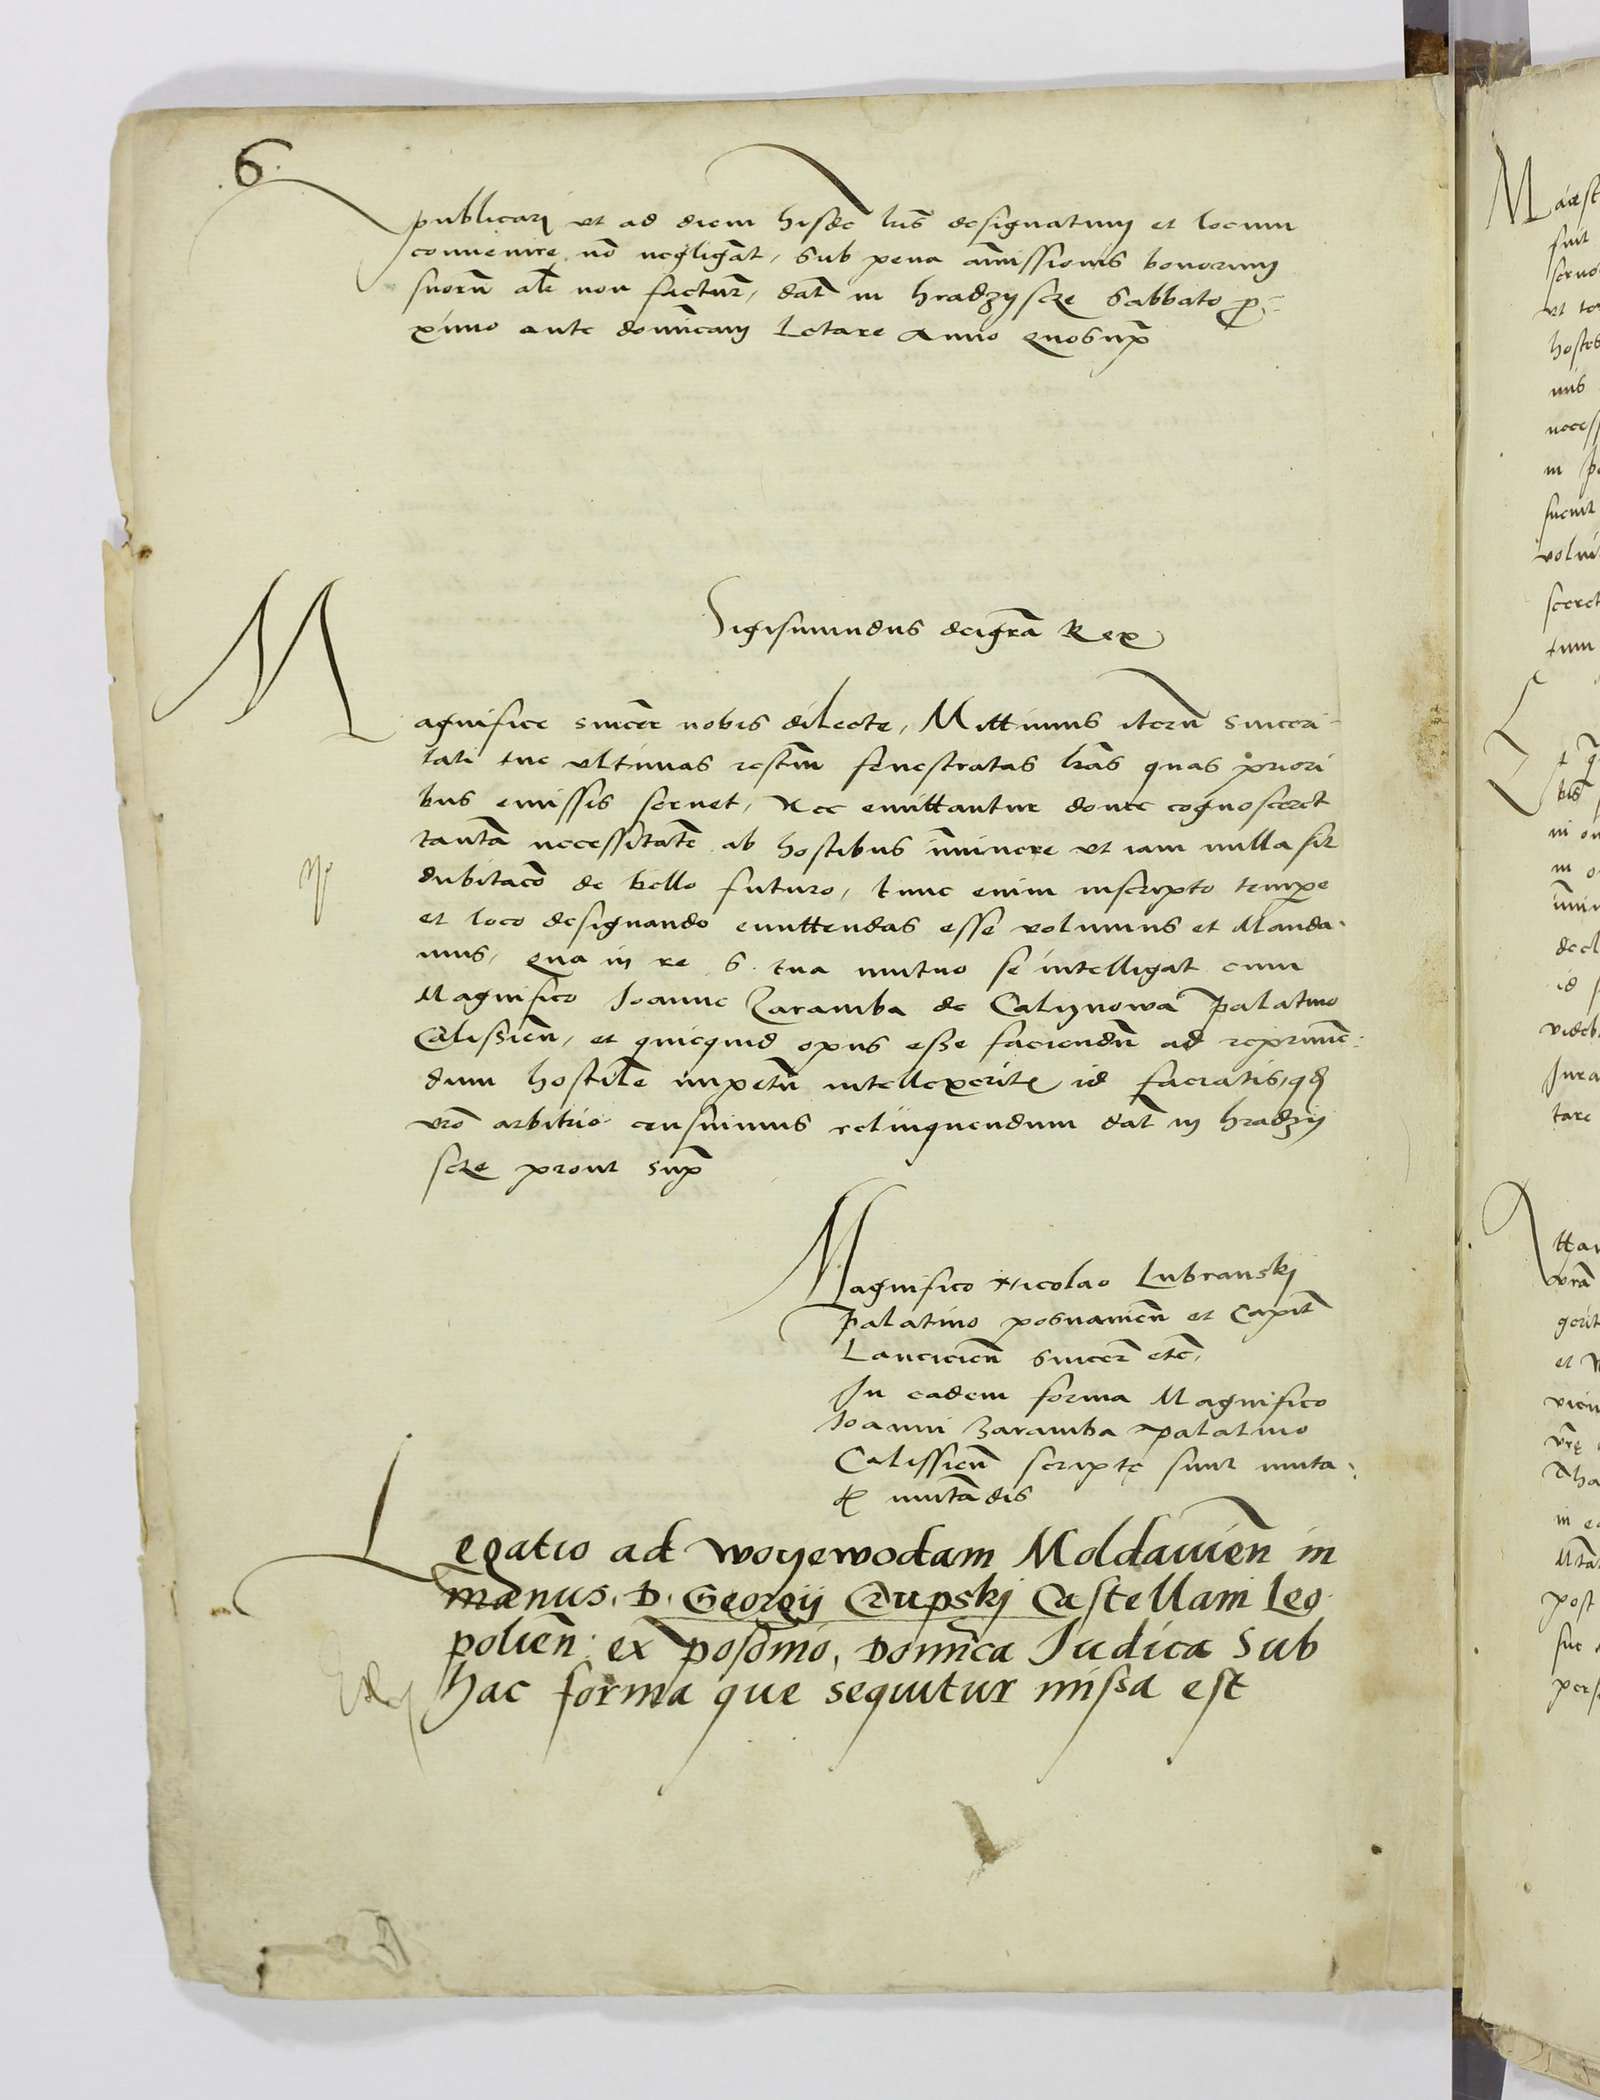 .6.
publicari ut ad diem hisdē lrīs designatum et locum
conuenire nō negligāt, sub pena amissionis bonorum
suorū alr̄ non facturꝫ, dat̄ in hradzyscze Sabbato ꝓ-
ximo ante dominicam Letare Anno quo sup̄
Sigismundus dei grā Rex
Magnifice sincere nobis dilecte, Mittimus iterū sinceri-
tati tue ultimas restiū fenestratas lrās quas priori
bus emissis seruet, Nec emittantur donec cognosceret
tantā necessitatē ab hostibus īminere ut iam nulla sit
dubitacō de bello futuro, tunc enim inscripto tempe
et loco designando emittendas esse volumus et Manda-
mus, Qua in re S. tua mutuo se intelligat cum
Magnifico Joanne Zaramba de Calynowa palatino
Calissien̄, et quicquid opus esse faciendū ad reprimē-
dum hostilē impetū intellexeritꝭ id faciatis, qd
vrō arbitrio censuimus relinquendum dat̄ in hradzy
scze prout sup̄
Magnifico Nicolao Lubranskj
palatino posnanien̄ et Capit̄
Lancicien̄ sincer̄ etc̄,
In eadem forma Magnifico
Joanni Zaramba palatino
Calissien̄ scripte sunt muta-
tꝭ mutādis
Legatio ad woyewodam Moldauien̄ in
manus, D, Georgij Crupskj Castellani Leo-
polien̄: ex posōnio, Domīca Judica Sub
hac forma que sequitur missa est